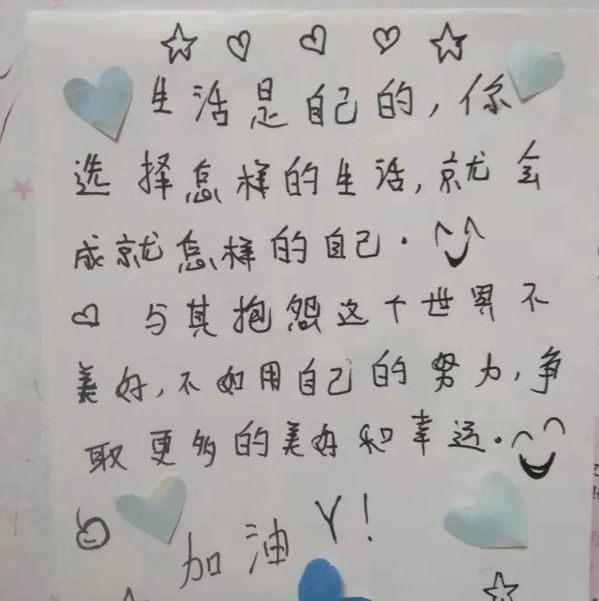 生活是自己的,你
选择怎样的生活,就会
成就怎样的自己.
与其抱怨这个世界不
美好,不如用自己的努力,争
取更多的美好和幸运.
加油Y!